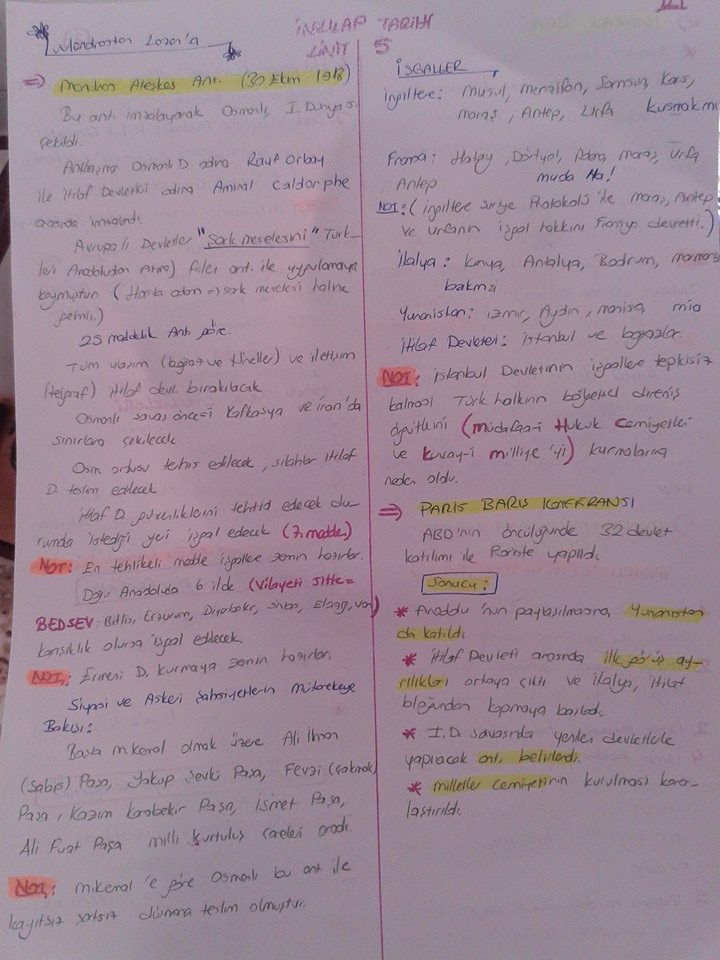 İNKILAP TARİHİ
ÜNİT 5
Mondrostan Lozan'a
⇒ Mondros Ateşkes Ant. (30 Ekim 1918)
Bu ant. imzalayarak Osmanlı, I. Dünya S.
çekildi.
Antlaşma Osmanlı D. adına Rauf Orbay
ile itilaf Devletleri adına Amiral Caldorphe
arasında imzalandı.
Avrupalı Devletler "Şark meselesini" Türk-
leri Anadoludan Atma) fiilen ant. ile uygulamaya
koymuştur (Hasta adam => şark meselesi haline
gelmiş.)
25 maddelik Ant. göre.
Tüm ulaşım (boğaz ve tüneller) ve iletişim
(telgraf) itilaf devl. bırakılacak
Osmanlı savaş öncesi Kafkasya ve iran'da
sınırlara çekilecek
Osm ordusu terhis edilecek, silahlar itilaf
D. teslim edilecek
itilaf D. güvenliklerini tehtid edecek du-
rumda istediği yeri işgal edecek (7. madde)
NOT: En tehlikeli madde işgallere zemin hazırlar.
Doğu Anadoluda 6 ilde (Vilayeti Sitte =
BEDSEV: Bitlis, Erzurum, Diyabakır, Sivas, Elazığ, Van)
karışıklık olursa işgal edilecek.
NOT: Ermeni D. kurmaya zemin hazırlar.
Siyasi ve Askeri Şahsiyetlerin Mütarekeye
Bakışı:
Başta m.kemal olmak üzere Ali İhsan
(Sabis) Paşa, Yakup Şevki Paşa, Fevzi (çakmak)
Paşa, Kazım karabekir Paşa, ismet Paşa,
Ali Fuat Paşa milli kurtuluş çareleri aradı
NOT: m.kemal'e göre Osmanlı bu ant ile
kayıtsız şartsız düşmana teslim olmuştur.
İŞGALLER
ingiltere: musul, merzifon, Samsun, Kars,
maraş, Antep, Urfa kusmak mı
Fransa: Hatay, Dörtyol, Adana, maraş, Urfa
Antep muda Ha!
NOT: (ingiltere suriye Protokolü ile maraş, Antep
ve urfanın işgal hakkını Fransaya devretti.)
italya: Konya, Antalya, Bodrum, marmaris
bakma
Yunanistan: izmir, Aydın, manisa mia
itilaf Devletleri: istanbul ve boğazlar.
NOT: istanbul Devletinin işgallere tepkisiz
kalması Türk halkının bölgesel direniş
örgütlerini (müdafaa-i Hukuk Cemiyetleri
ve kuvay-i milliye'yi) kurmalarına
neden oldu.
⇒ PARİS BARIŞ KONFERANSI
ABD'nin öncülüğünde 32 devlet
katılımı ile Pariste yapıldı.
Sonucu:
* Anadolu'nun paylaşılmasına Yunanistan
da katıldı.
* itilaf Devleti arasında ilk görüş ay-
rılıkları ortaya çıktı ve italya, itilaf
bloğundan kopmaya başladı.
* I.D savaşında yenilen devletlerle
yapılacak ant. belirlendi.
* milletler cemiyetinin kurulması karar-
laştırıldı.